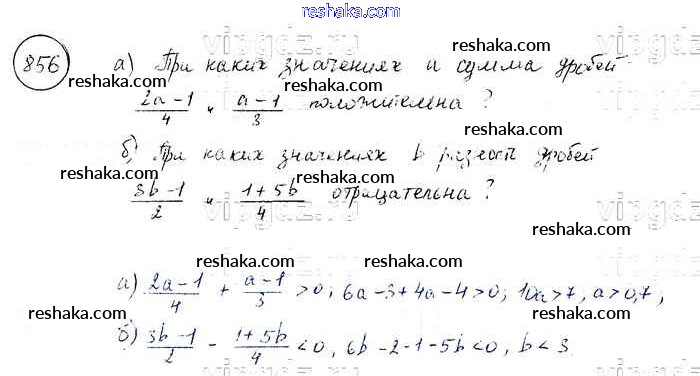 reshaka.com
856 а) При каких значениях а сумма дробей
reshaka.com reshaka.com reshaka.com
2a-1/4 и a-1/3 положительна?
б) При каких значениях b разность дробей
reshaka.com reshaka.com reshaka.com
3b-1/2 и 1+5b/4 отрицательна?
reshaka.com reshaka.com reshaka.com
а) 2a-1/4 + a-1/3 >0; 6a-3+4a-4>0; 10a>7, a>0,7;
reshaka.com reshaka.com reshaka.com
б) 3b-1/2 - 1+5b/4 <0, 6b-2-1-5b<0, b<3
reshaka.com reshaka.com reshaka.com